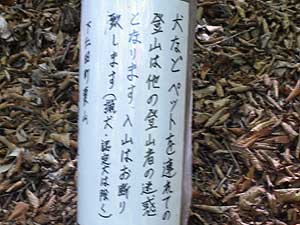 犬などペットを連れての
登山は他の登山者の迷惑
となります入山はお断り
致します(盲犬・認定犬は除く)
下仁田町東山